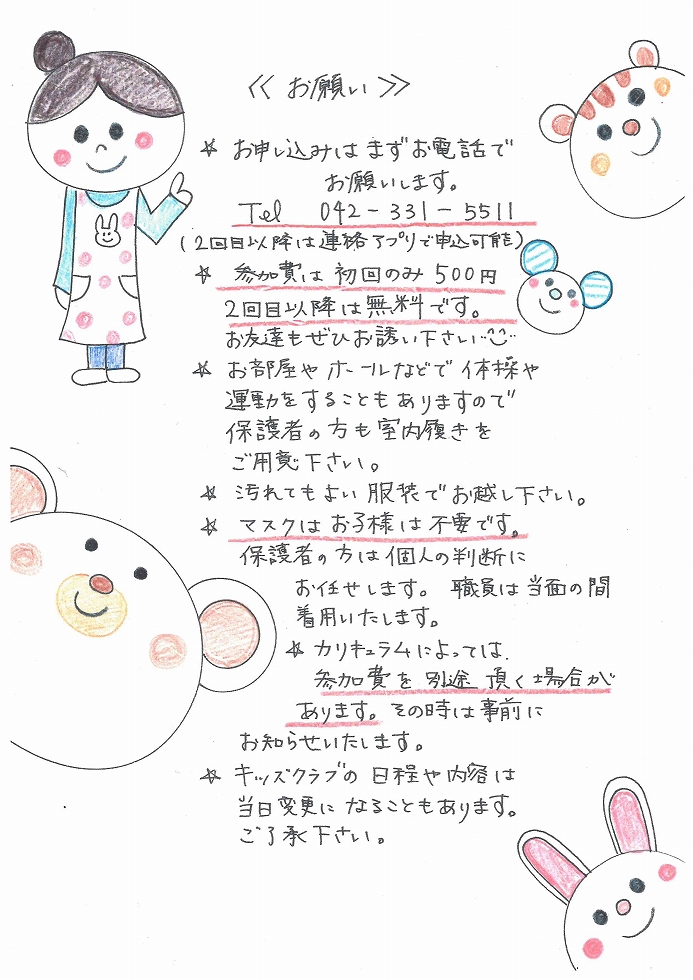 ≪ お願い ≫
☆ お申し込みはまずお電話で
お願いします。
Tel 042-331-5511
(2回目以降は連絡アプリで申込可能)
☆ 参加費は初回のみ500円
2回目以降は無料です。
お友達もぜひお誘い下さい
☆ お部屋やホールなどで体操や
運動をすることもありますので
保護者の方も室内履きを
ご用意下さい。
☆ 汚れてもよい服装でお越し下さい。
☆ マスクはお子様は不要です。
保護者の方は個人の判断に
お任せします。 職員は当面の間
着用いたします。
☆ カリキュラムによっては、
参加費を別途頂く場合が
あります。その時は事前に
お知らせいたします。
☆ キッズクラブの日程や内容は
当日変更になることもあります。
ご了承下さい。